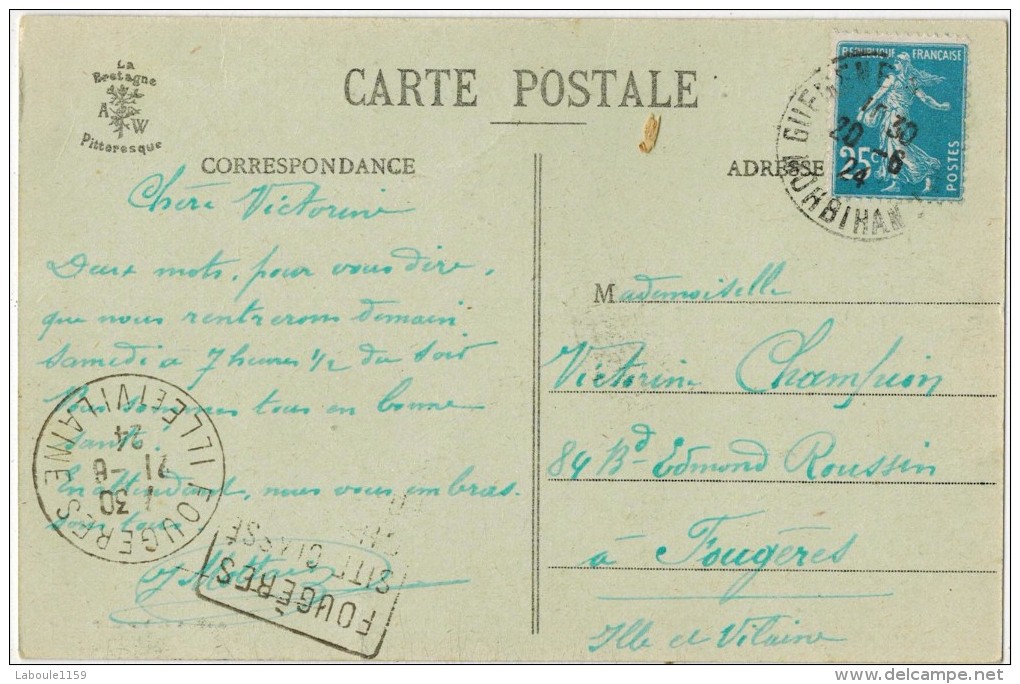 La
Bretagne
A W
Pittoresque
CARTE POSTALE
CORRESPONDANCE
ADRESSE
RÉPUBLIQUE FRANÇAISE
25c
POSTES
GUEMENE
MORBIHAN
30
20-6
24
Chère Victorine
Deux mots, pour vous dire,
que nous rentrerons demain
samedi à 7 heures 1/2 du soir
Nous sommes tous en bonne
santé.
En attendant, nous vous embras-
sons tous
Mademoiselle
Victorine Champion
84 Bd Edmond Roussin
à Fougères
Ille et Vilaine
FOUGERES
ILLE ET VILAINE
30
21-6
24
FOUGÈRES
SITE CLASSÉ
Laboule1159
delcampe.net